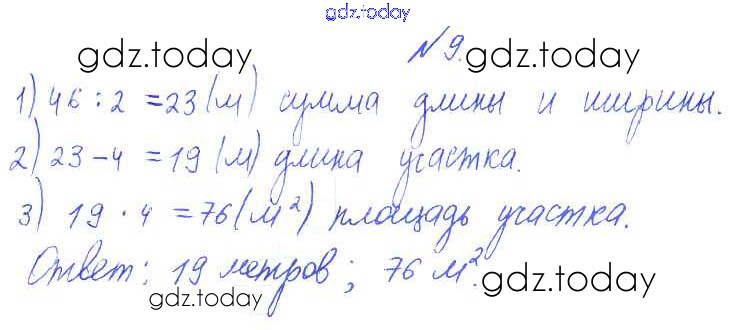 gdz.today
gdz.today №9. gdz.today
1) 46 : 2 = 23 (м) сумма длины и ширины.
2) 23 - 4 = 19 (м) длина участка.
3) 19 · 4 = 76 (м²) площадь участка.
Ответ: 19 метров; 76 м².
gdz.today gdz.today